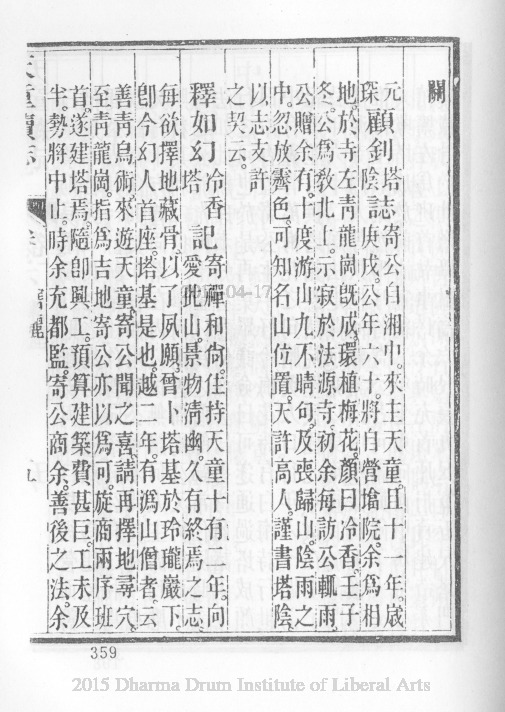 關
元顧釗塔誌寄公自湘中來主天童且十一年歲
琛陰庚戌公年六十將自營墖院余爲相
地於寺左靑龍崗旣成環植梅花顏曰冷香壬子
冬公爲敎北上示寂於法源寺初余每訪公輒雨
公贈余有十度游山九不晴句及喪歸山陰雨之
中忽放霽色可知名山位置天許高人謹書塔陰
以志支許
之契云
釋如幻冷香塔記寄禪和尙住持天童十有一年向
愛此山景物淸幽久有終焉之志
每欲擇地藏骨以了夙願曾卜塔基於玲瓏巖下
卽今幻人首座塔基是也越二年有潙山僧者云
善靑烏術來遊天童寄公聞之喜請再擇地尋穴
至靑龍崗指爲吉地寄公亦以爲可旋商兩序班
首遂建塔焉隨卽興工預算建築費甚巨工未及
半勢將中止時余充都監寄公商余善後之法余
天童續志
九
359
2015 Dharma Drum Institute of Liberal Arts